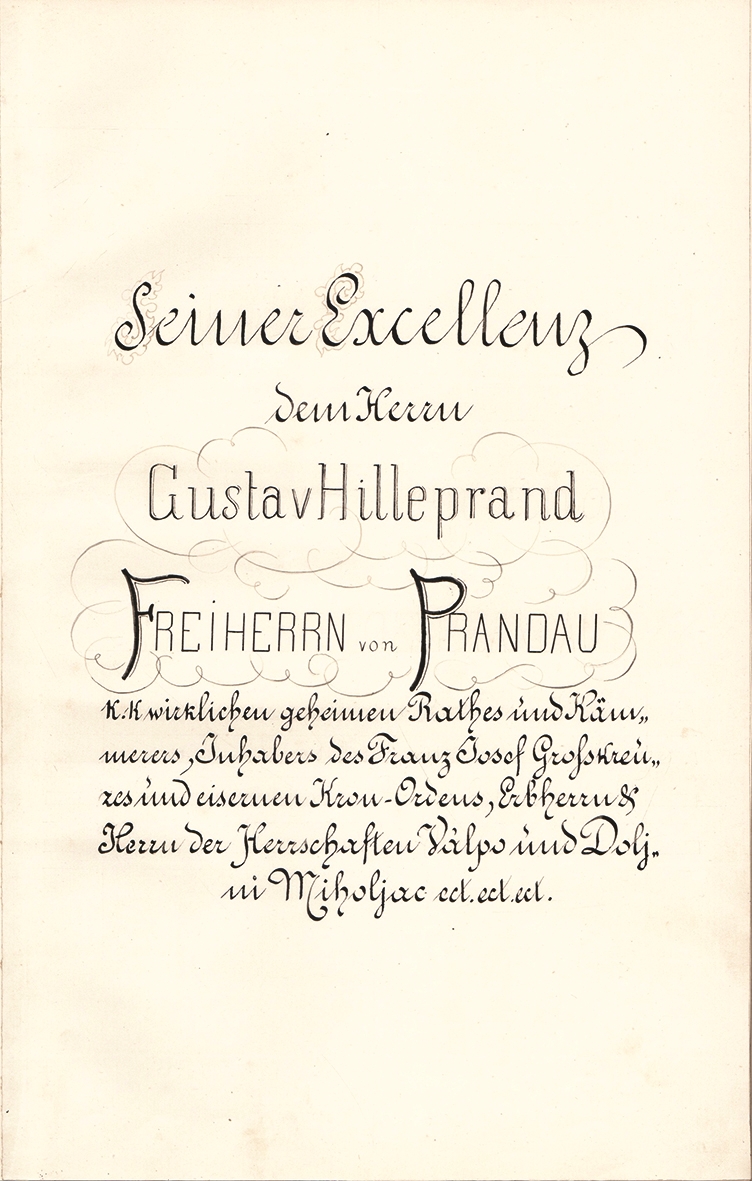 Seiner Excellenz
dem Herrn
Gustav Hilleprand
FREIHERRN von PRANDAU
K. K wirklichen geheimen Rathes und Käm„
merers, Inhabers des Franz Josef Großkreu„
zes und eisernen Kron-Ordens, Erbherrn &
Herrn der Herrschaften Válpo und Dolj„
ni Miholjac ect. ect. ect.